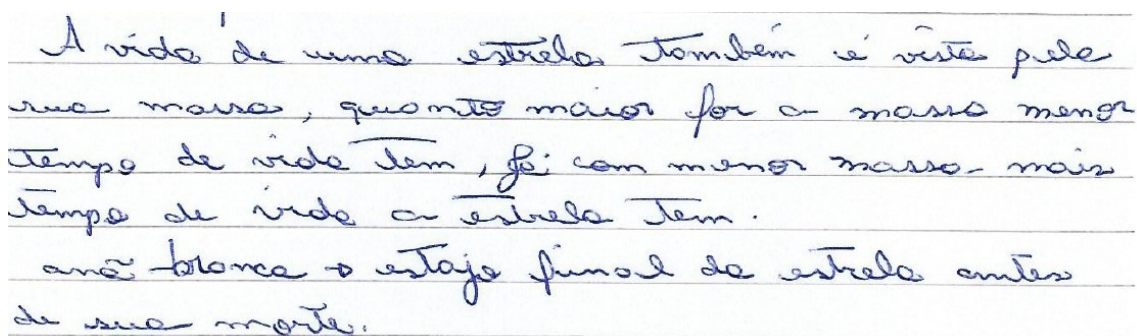 A vida de uma estrela também é vista pela
sua massa, quanto maior for a massa menor
tempo de vida tem, já com menor massa mais
tempo de vida a estrela tem.
anã branca → estajo final da estrela antes
de sua morte.